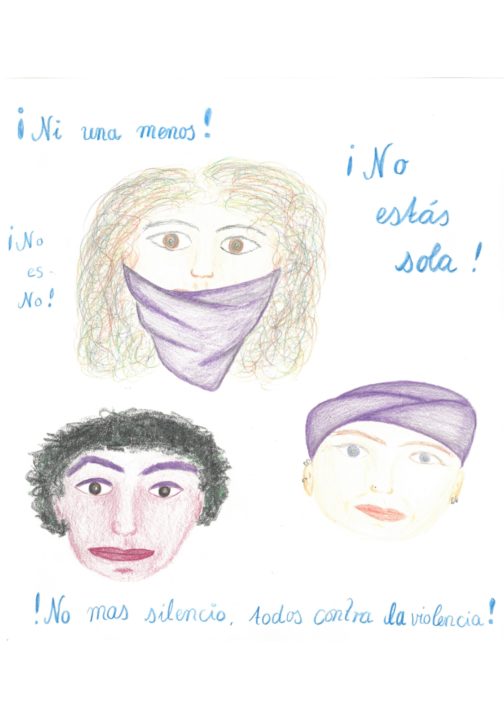 ¡Ni una menos!
¡No
estás
sola!
¡No
es-
No!
!No mas silencio, todos contra la violencia!